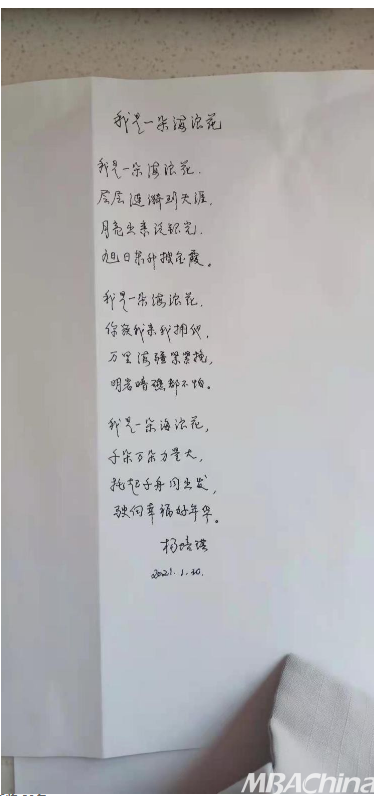 我是一朵海浪花
我是一朵海浪花.
层层涟漪到天涯,
月亮出来泛银光.
旭日东升披金霞。
我是一朵海浪花.
你簇我来我拥你,
万里海疆紧紧挽,
明岩暗礁都不怕。
我是一朵海浪花,
千朵万朵力量大,
托起千舟同出发,
驶向幸福好年华。
杨培
2021.1.30.
MBAChina